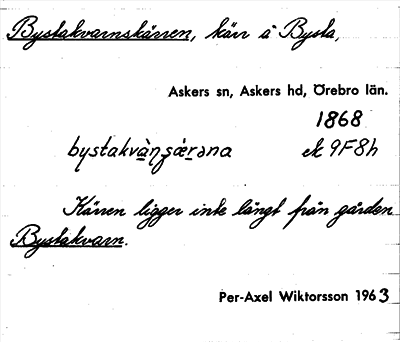 Bystakvarnskärren, kärr å Bysta,
Askers sn, Askers hd, Örebro län.
1868
ek 9F8h
Kärren ligger inte långt från gården
Bystakvarn.
Per-Axel Wiktorsson 1963